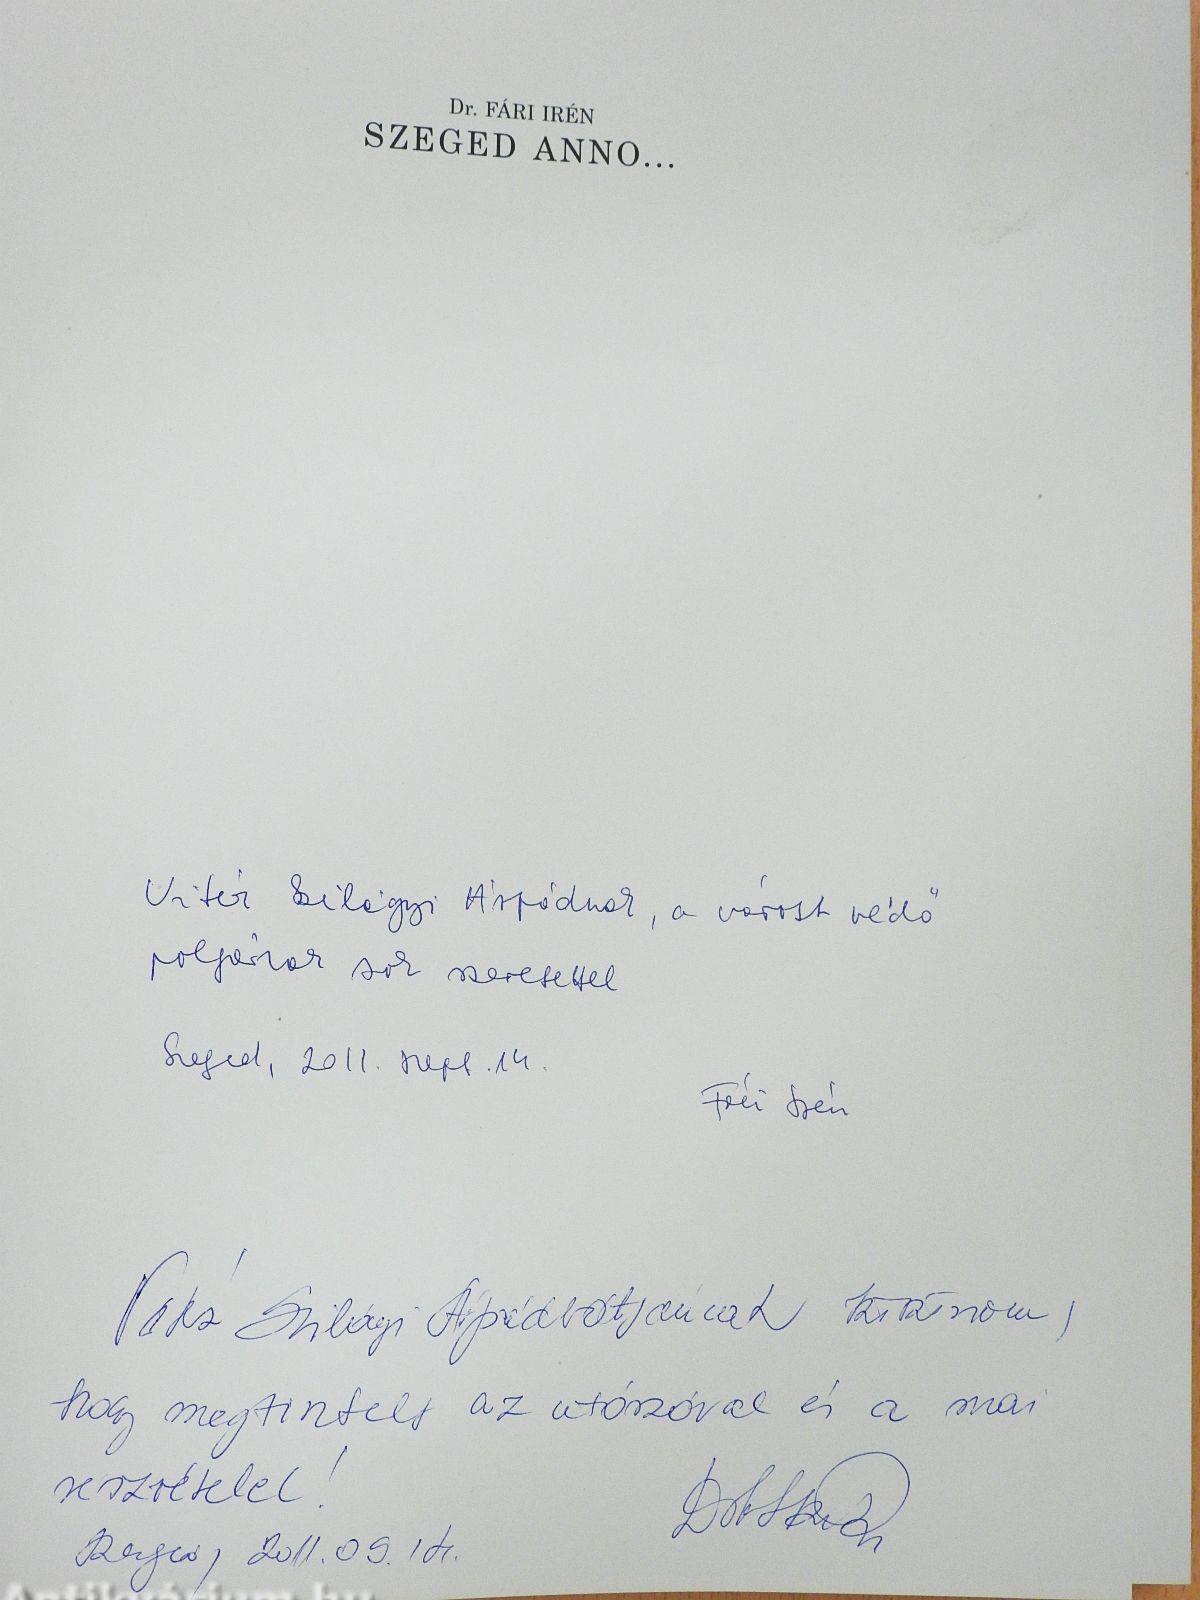 Dr. FÁRI IRÉN
SZEGED ANNO...
Vitéz Szilágyi Árpádnak, a várost védő
polgárnak sok szeretettel
Szeged, 2011. szept. 14.
Fári Irén
Szilágyi Árpád bátyámnak
hogy megtisztelt az utószóval és a mai
részvétellel!
Szeged, 2011. 09. 14.
Antikvárium.hu